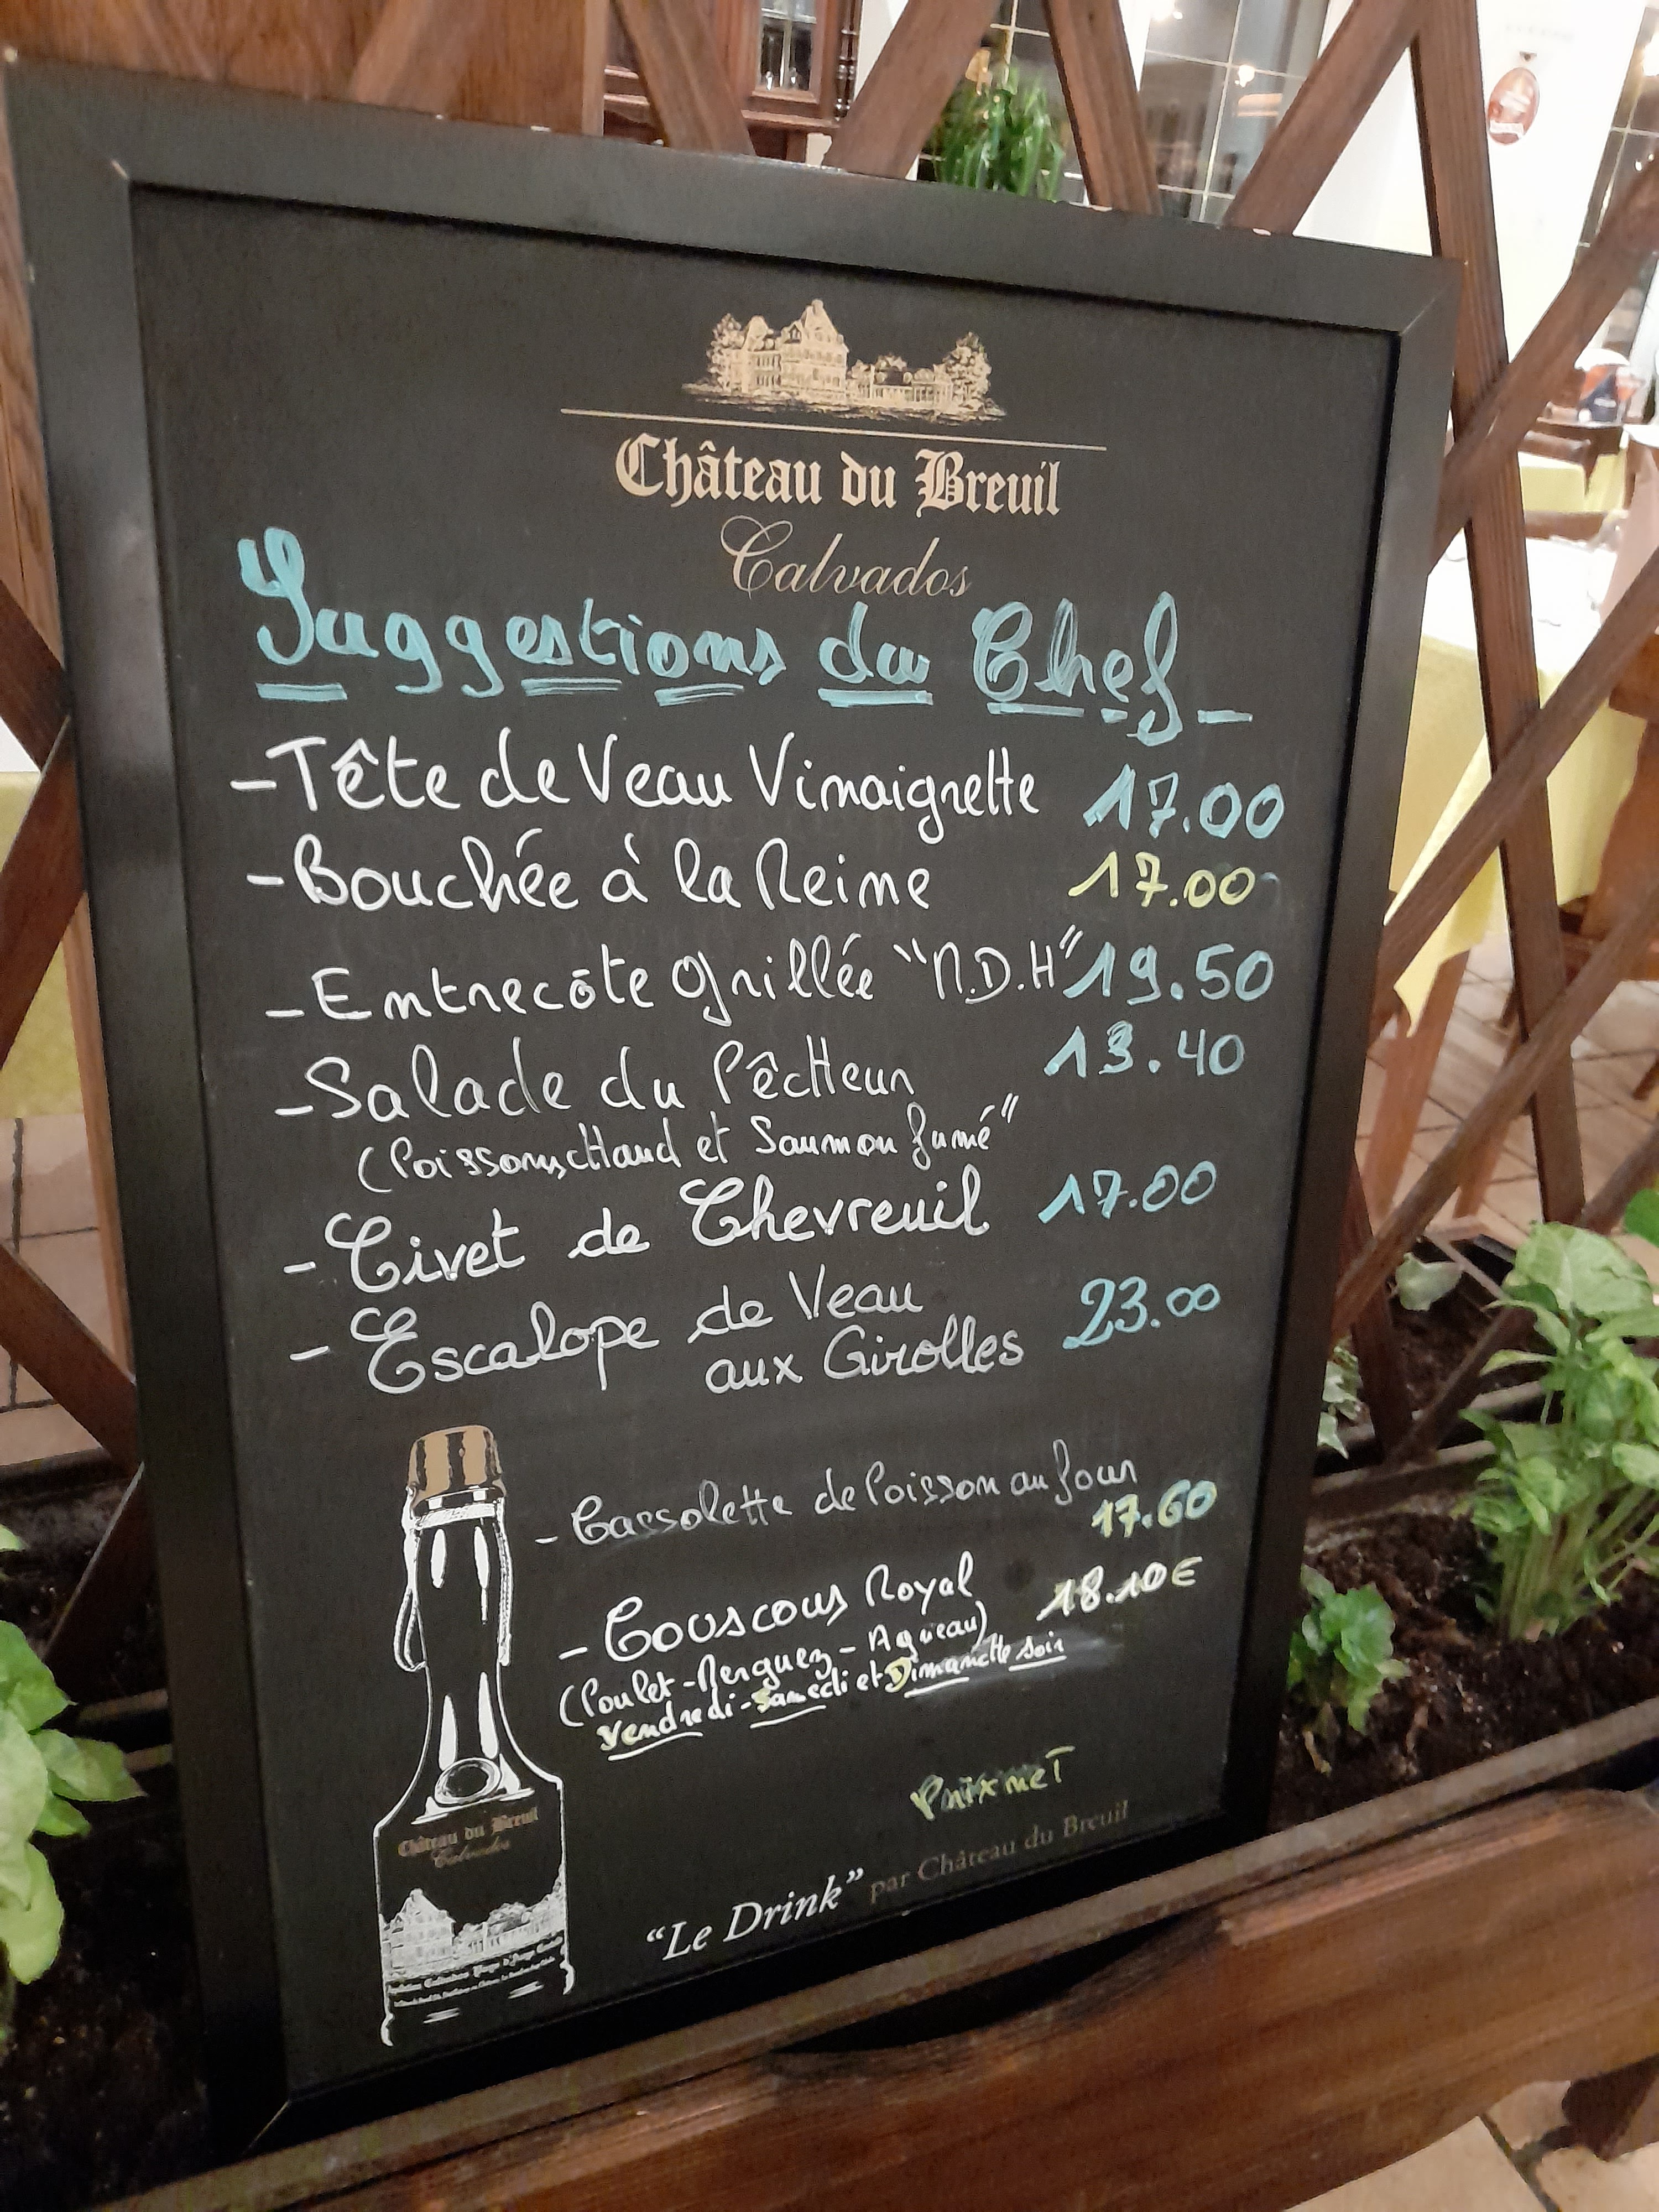 Château du Breuil
Calvados
Suggestions du Chef
- Tête de Veau Vinaigrette 17.00
- Bouchée à la Reine 17.00
- Entrecôte grillée "M.D.H" 19.50
- Salade du PêcHeur 13.40
(Poissons, cHaud et Saumon fumé"
- Civet de Chevreuil 17.00
- Escalope de Veau
aux Girolles 23.00
- Cassolette de Poisson au four
17.60
- Couscous Royal 18.10€
(Poulet - Merguez - Agneau)
Vendredi - Samedi et DimancHe soir
Prix net
Château du Breuil
Calvados
"Le Drink" par Château du Breuil